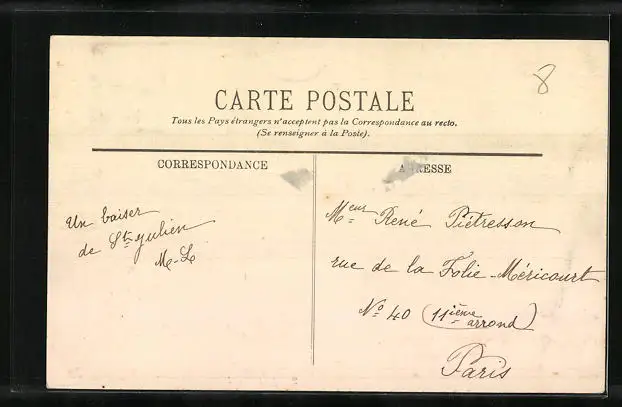 8
CARTE POSTALE
Tous les Pays étrangers n'acceptent pas la Correspondance au recto.
(Se renseigner à la Poste).
CORRESPONDANCE
ADRESSE
Un baiser
de St-Julien
M-L
Meur René Piétresson
rue de la Folie-Méricourt
No 40 (11ième arrond)
Paris